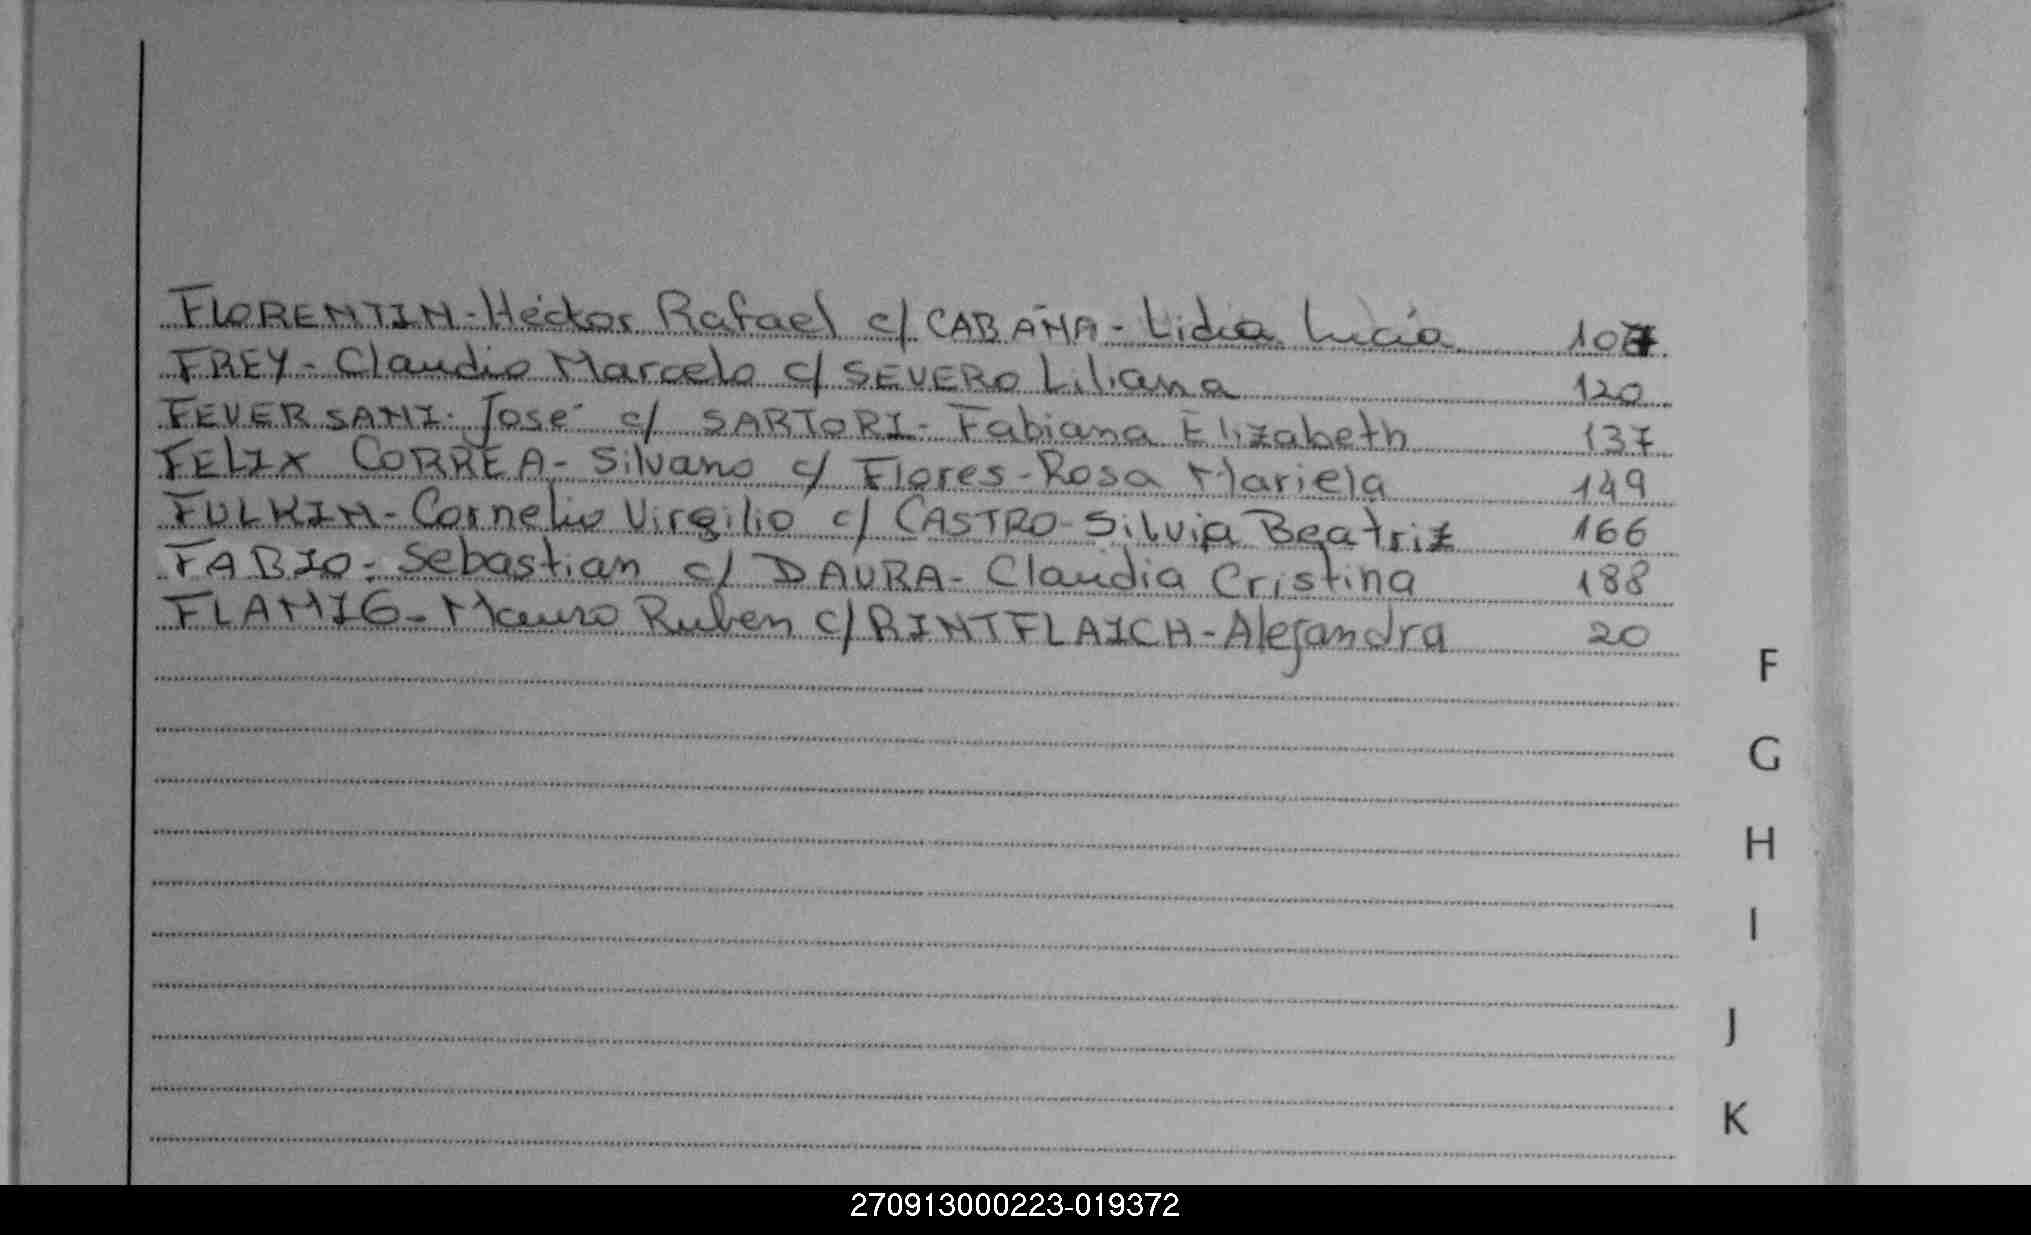 FLORENTIN - Héctor Rafael c/ CABAÑA - Lidia Lucía 107
FREY - Claudio Marcelo c/ SEVERO Liliana 120
FEVERSANI - José c/ SARTORI - Fabiana Elizabeth 137
FELIX CORREA - Silvano c/ Flores - Rosa Mariela 149
FULKIN - Cornelio Virgilio c/ CASTRO - Silvia Beatriz 166
FABIO - Sebastian c/ DAURA - Claudia Cristina 188
FLAMIG - Mauro Ruben c/ RINTFLAICH - Alejandra 20
F
G
H
I
J
K
270913000223-019372